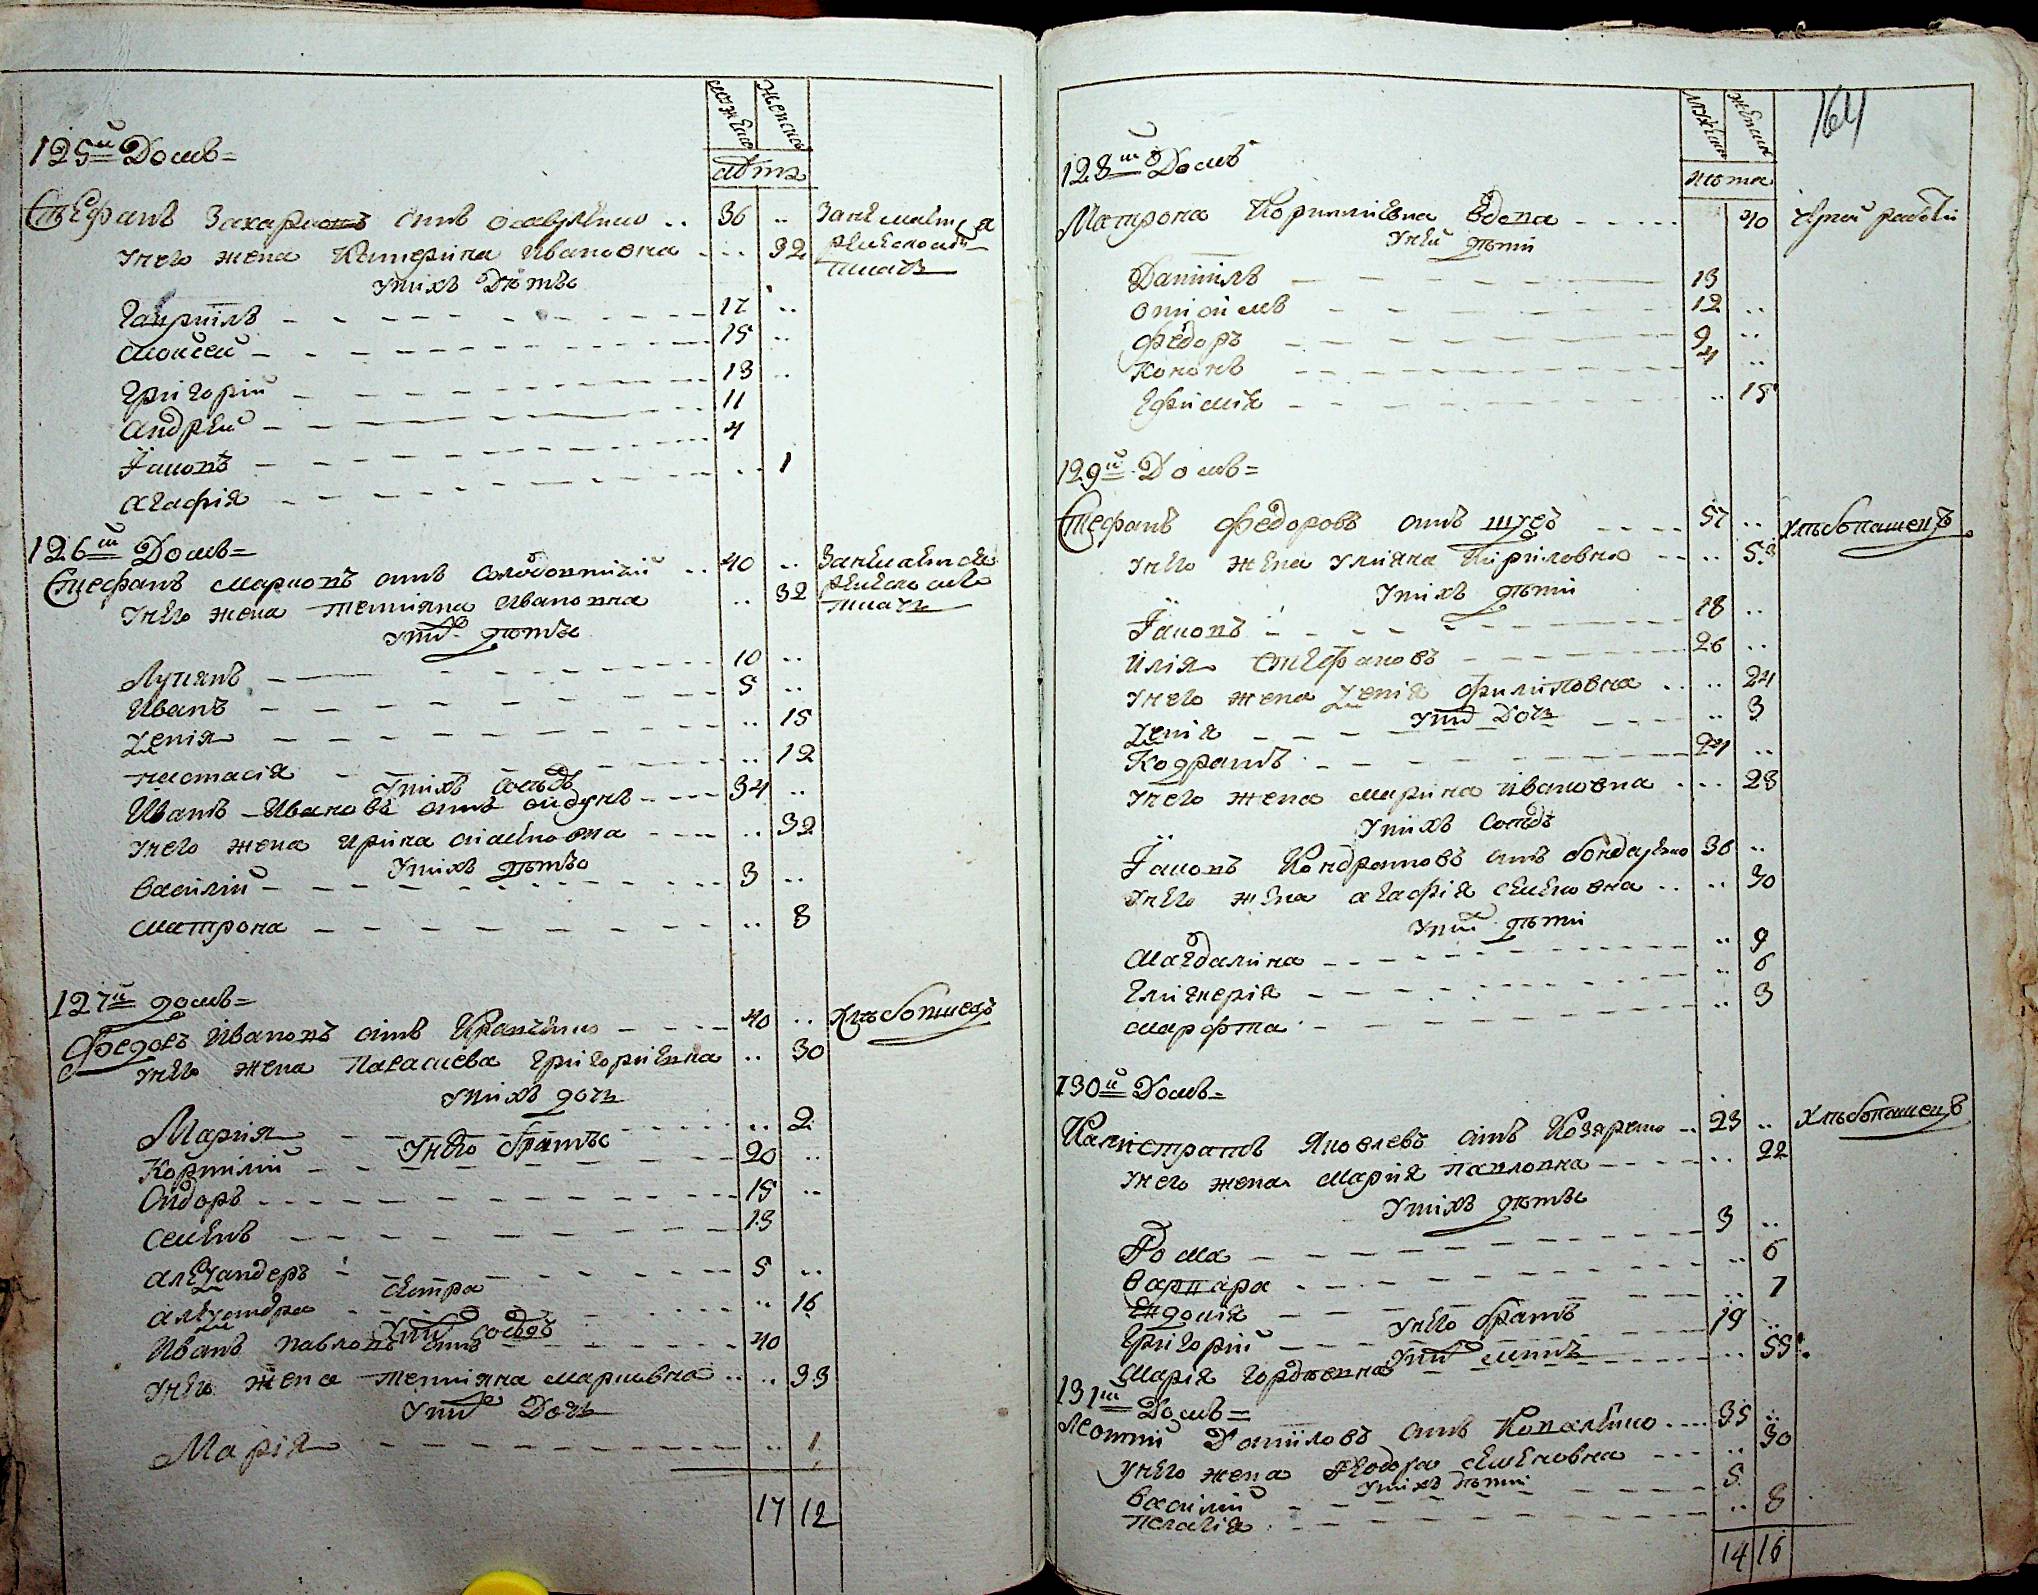 мужеска женска
лѣта
125й Домъ=
Стефанъ Захаріевъ сынъ осавуленко .. 36 .. Занимаится
унего жена Катерина Ивановна .. 32 рикомысл
ткацъ
унихъ Дѣтѣ
Гавріилъ 17 ..
Моисей 15 ..
Григорій 13 ..
андрей 11
Яковъ 4
агафія .. 1
126й Домъ=
Стефанъ марковъ сынъ .. 40 ..
унего жена теттяна Ивановна .. 32
ткачъ
унихъ дѣтѣ
Лукянъ 10 ..
Иванъ 5 ..
.. 15
настасія .. 12
унихъ сосѣдъ
Иванъ Ивановъ сынъ 34 ..
унего жена ирина .. 32
унихъ дѣтѣ
василій 3 ..
матрона .. 8
127й домъ=
Федоръ Ивановъ сынъ Кравченко 40 .. хлѣбопашецъ
унего жена Параскева Григоріевна .. 30
унихъ дочь
Марія .. 2
унего братѣ
Корнилій 20 ..
Сидоръ 15 ..
семенъ 13
александеръ 5 ..
сестра
александра .. 16
унихъ сосѣдъ
Иванъ павловъ сынъ 40
унего жена теттяна марковна .. 33
унихъ Дочь
Марія .. 1
17 12
164
мужеска женска
лѣта
128й Домъ
Матрона Корнтіевна вдова 40 чрный работи
унеи дѣти
Даніилъ 13
12 ..
Федоръ 9 ..
Кононъ 4 ..
Ефимія .. 15
129й Домъ=
Стефанъ Федоровъ сынъ 57 .. хлѣбопашецъ
унего жена Уляна Кириловна .. 53
унихъ дѣти
Яковъ 18 ..
илія стефановъ 26 ..
унего жена филиповна .. 24
унихъ Дочь
.. 3
Кодратъ 24 ..
унего жена марина ивановна .. 23
унихъ сосѣдъ
Яковъ Кондратовъ сынъ бондаренко 36 ..
унего жена агафія семеновна .. 30
унихъ дѣти
магдалина .. 9
гликерія .. 6
марфта .. 3
130й Домъ=
Калистратъ Яковлевъ сынъ Козаренко .. 23 .. хлѣбопашецъ
унего жена Марія павловна .. 22
унихъ дѣтѣ
Фома 3 ..
варвара .. 6
.. 1
унего братъ
Григорій 19 ..
унихъ мать
Марія .. 55
131й Домъ=
Леонтій Даніиловъ сынъ Коваленко 35 ..
унего жена Феодора семеновна .. 30
унихъ дѣти
василій 5
пелагія .. 8
14 16